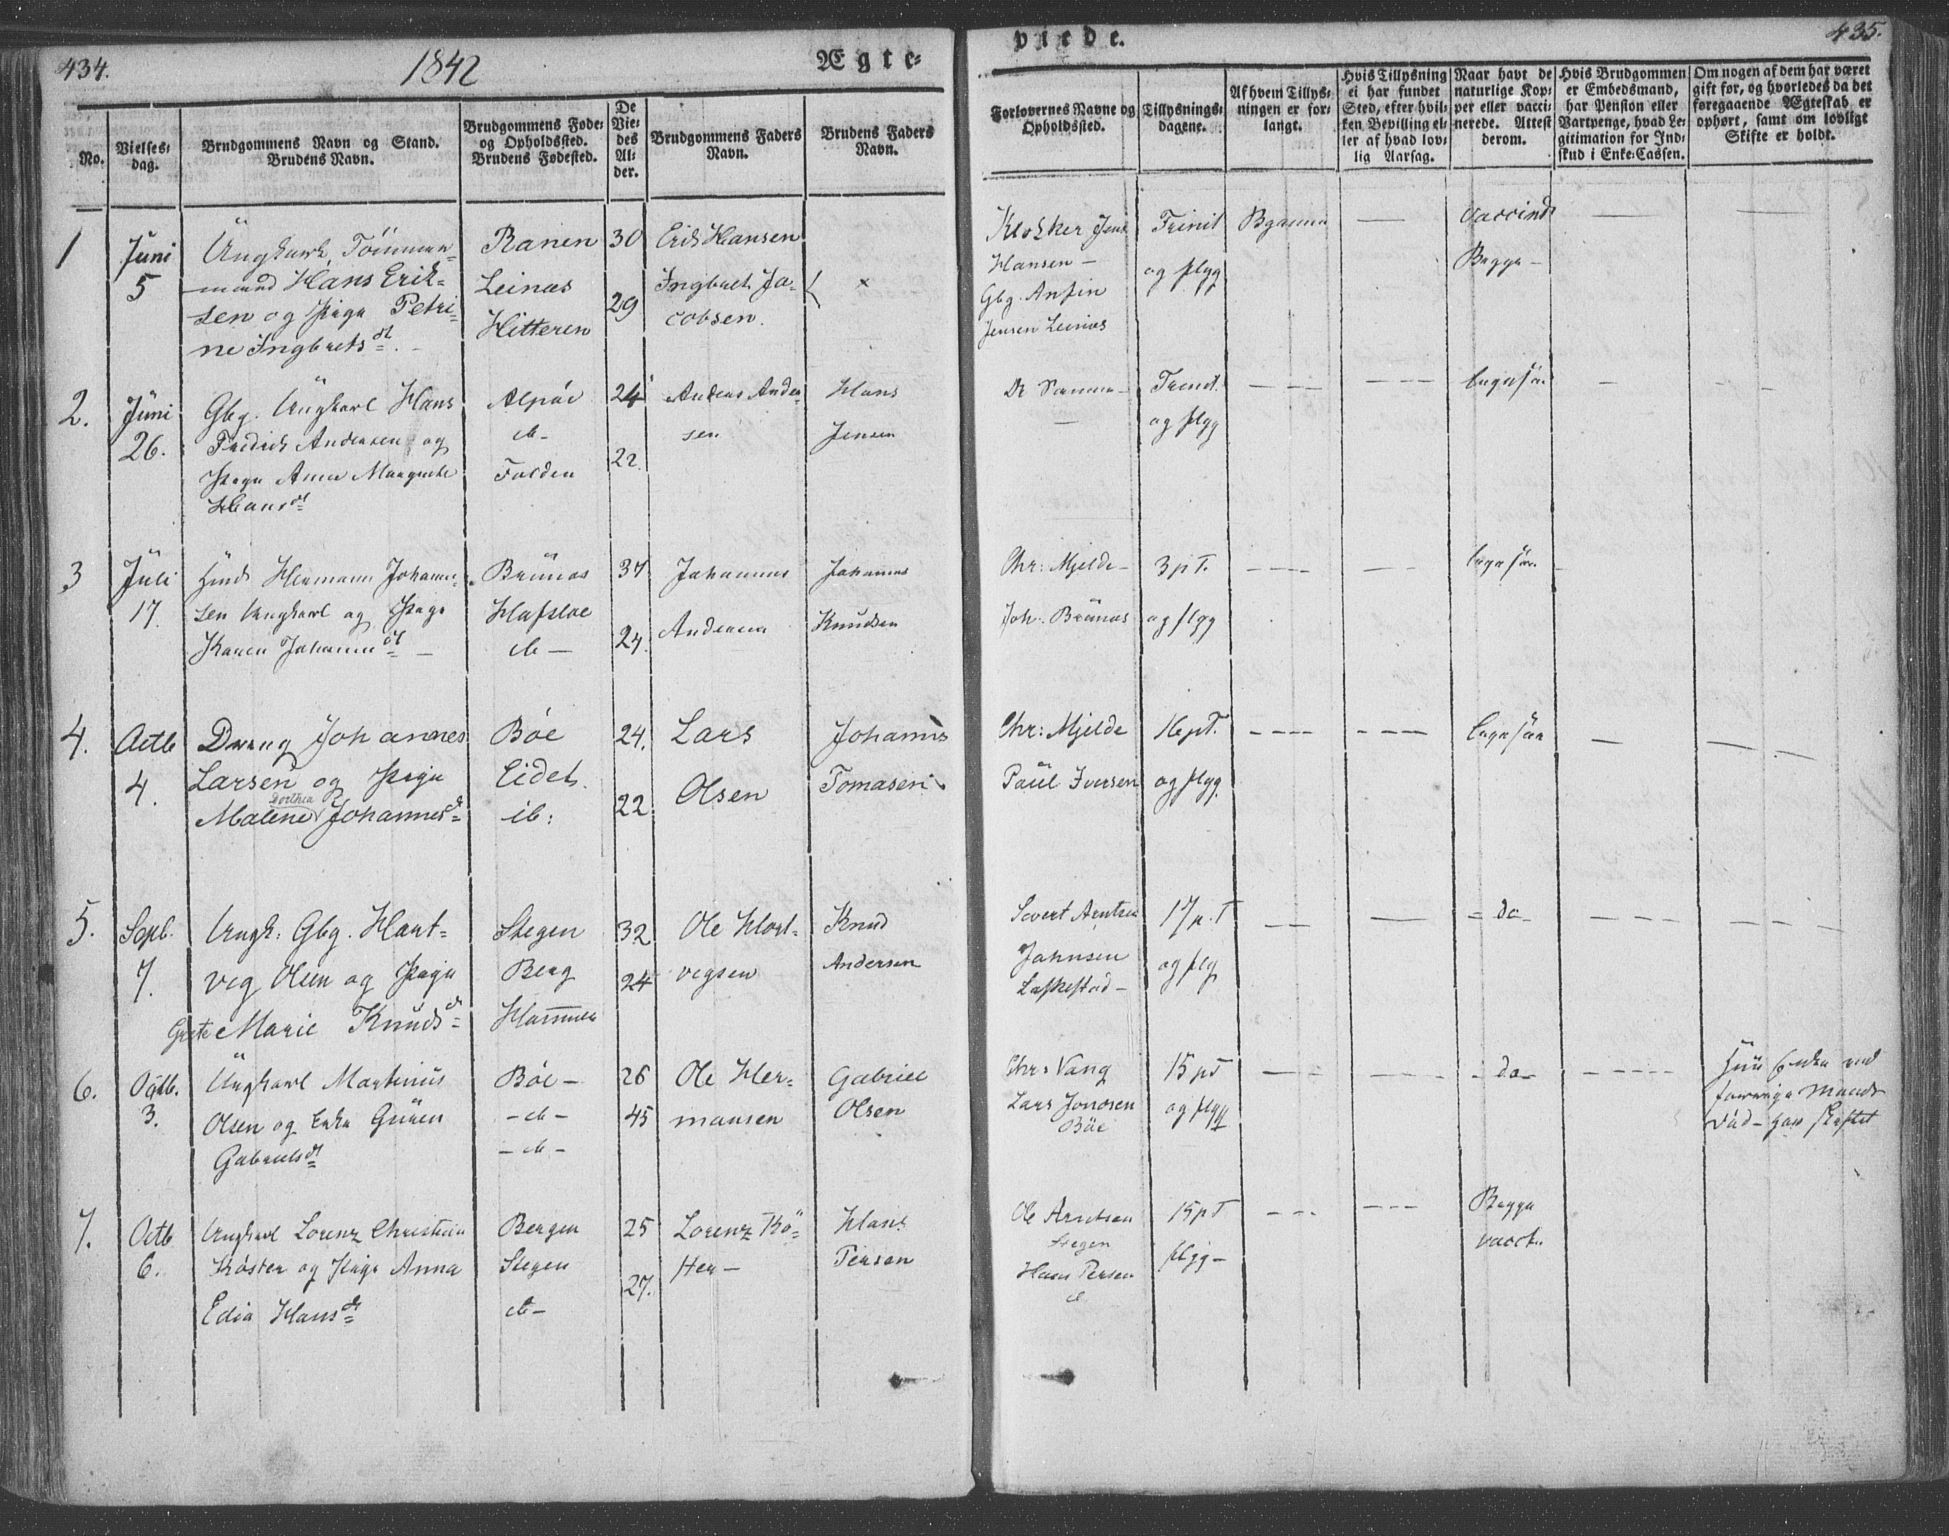 434.
1842
Ægte-
No.
Vielses-
dag.
Brudgommens Navn og Stand.
Brudens Navn.
Brudgommens Føde-
og Opholdssted.
Brudens Fødested.
De
Vie-
des
Al-
der.
Brudgommens Faders
Navn.
Brudens Faders
Navn.
1
Juni
5
Ungkarl, Tømmer-
mand Hans Erik-
sen og Pige Petri-
ne Ingbrets dt
Ranen
Leines
Hitteren
30
29
Erik Hansen
Ingbret Ja-
cobsen.
2.
Juni
26.
Gbg. Ungkarl Hans
Fredrik Andersen og
Pige Anna Margrete
Hans dt
Alpøe
ib-
Folden
24
22
Andreas Ander
sen
Hans
Jensen
3
Juli
17.
Huusm Hermann Johann-
sen Ungkarl og Pige
Karen Johann dt
Brünæs
Hafsloe
ib-
37
24.
Johannes
Andersen
Johannes
Knudsen
4.
Octb
4.
Dreng Johannes
Larsen og Pige
Dorthea
Malene Johannes dt
Bøe
Eidet
ib:
24.
22.
Lars
Olsen
Johannes
Tomasen
5.
Sepb.
7.
Ungk: Gbg. Hart-
vig Olsen og Pige
Grete Marie Knuds dt
Stegen
Berg
Hammer
32
24
Ole Hart-
vigsen
Knud
Andersen
6.
Octb.
3.
Ungkarl Martinus
Olsen og Enke Guuen
Gabriels dt
Bøe-
-ib-
-ib-
26
45
Ole Her-
mansen
Gabriel
Olsen
7.
Octb
6.
Ungkarl Lorenz Christian
Køster og Pige Anna
Edia Hans dt
Bergen
Stegen
ib-
25
27.
Lorenz Kö-
ster-
Hans
Persen
435.
viede.
Forlovernes Navne og
Opholdssted.
Tillysnings-
dagene.
Af hvem Tillys-
ningen er for-
langt.
Hvis Tillysning
ei har fundet
Sted, efter hvil-
ken Bevilling el-
ler af hvad lov-
lig Aarsag.
Naar havt de
naturlige Kop-
per eller vacci-
nerede. Attest
derom.
Hvis Brudgommen
er Embedsmand,
har Pension eller
Vartpenge, hvad Le-
gitimation for Ind-
skud i Enke-Cassen.
Om nogen af dem har været
gift før, og hvorledes da det
foregaaende Ægteskab er
ophørt, samt om lovligt
Skifte er holdt.
Klokker Jens
Hansen-
Gbg. Anfin
Jensen Leines
Trinit
og flgg
Bgamm
vaccind
Begge-
De Samme-
Trinit.
og flgg
Chr: Mjelde-
Joh. Brünæs
3 p T.
og flgg
Chr: Mjelde
Paul Iversen
16 p T.
og flgg
Sivert Arntsen
Johnsen
Laskestad-
17 p. T
og flg
-do-
Chr: Vang
Lars Jonasen
Bøe
15 p T
og flgg
-do-
Hun Enke ved
forrige Mands
Død- har skiftet
Ole Arntsen
Stegen
Hans Persen
15 p T
flgg-
Begge
vacc.